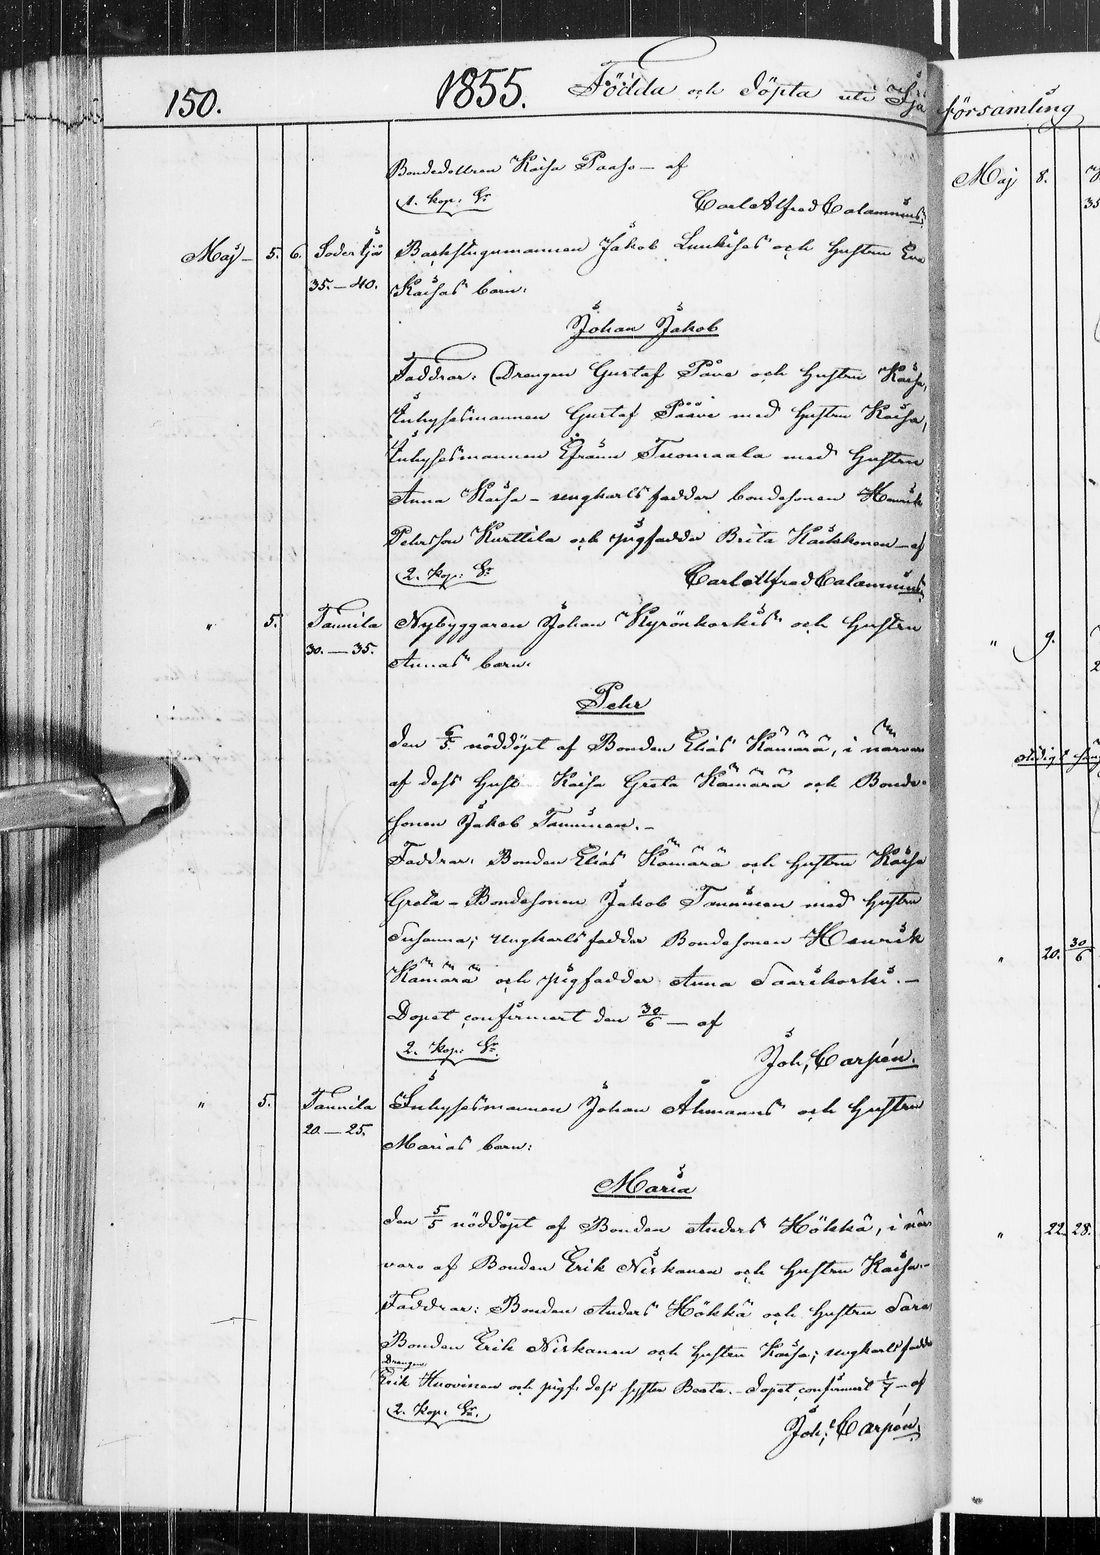 150. 1855. Födda och Döpta uti Ijå
Bondedottren Kaisa Paaso – af
1. kop: Sr
Carl Alfred Calamnius.
Maj – 5. 6. Söder Ijå Backstugumannen Jakob Lunkisas och hustru Eva
35. – 40. Kaisas barn:
Johan Jakob
Faddrar: Drengen Gustaf Pååve och hustru Kaisa,
Inhysesmannen Gustaf Pååve med hustru Kaisa,
Inhysesmannen Efraim Tuomaala med hustru
Anna Kaisa – ungkarls fadder bondesonen Henrik
Pehrsson Kurttila och pigfadder Brita Kaikkonen – af
2. kop: Sr
Carl Alfred Calamnius.
" 5. Tannila Nybyggaren Johan Kyrönkoskis och hustru
30. – 35. Annas barn:
Pehr
den 6/5 nöddöpt af Bonden Elias Kämärä, i närvaro
af dess hustru Kaisa Greta Kämärä och Bonde-
sonen Jakob Tanninen. –
Faddrar: Bonden Elias Kämärä och hustru Kaisa
Greta – Bondesonen Jakob Tanninen med hustru
Susanna; ungkarls fadder Bondesonen Henrik
Kämärä och pigfadder Anna Saarikoski. –
Dopet confirmert den 30/6 – af
2. kop: Sr
Joh; Carpén.
" 5. Tannila Inhysesmannen Johan Åhmanns och hustru
20. – 25. Marias barn:
Maria
den 5/5 nöddöpt af Bonden Anders Hökkä, i när-
varo af Bonden Erik Niskanen och hustru Kaisa. –
Faddrar: Bonden Anders Hökkä och hustru Sara
Bonden Erik Niskanen och hustru Kaisa; ungkarls fadder
Drengen
Erik Huovinen och pigf: dess syster Beata. Dopet confirmert 1/7 – af
2. kop: Sr.
Joh; Carpén.
församling
Maj 8.
35
" 9.
2
" 20. 30/6
" 22. 28.